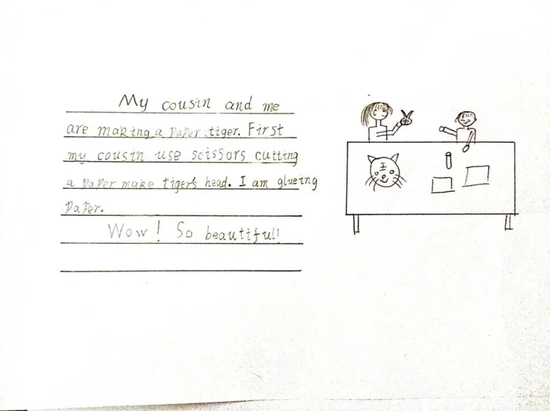 My cousin and me
are making a paper tiger. First
my cousin use scissors cutting
a paper make tigers head. I am glueing
paper.
Wow! So beautiful!